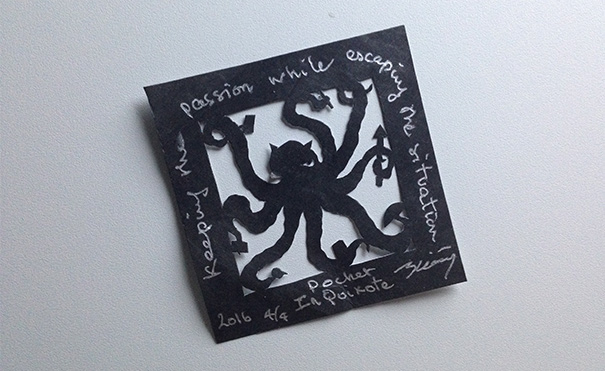 Keeping the passion while escaping the situation
Pocket
In Poikote
2016 4/4